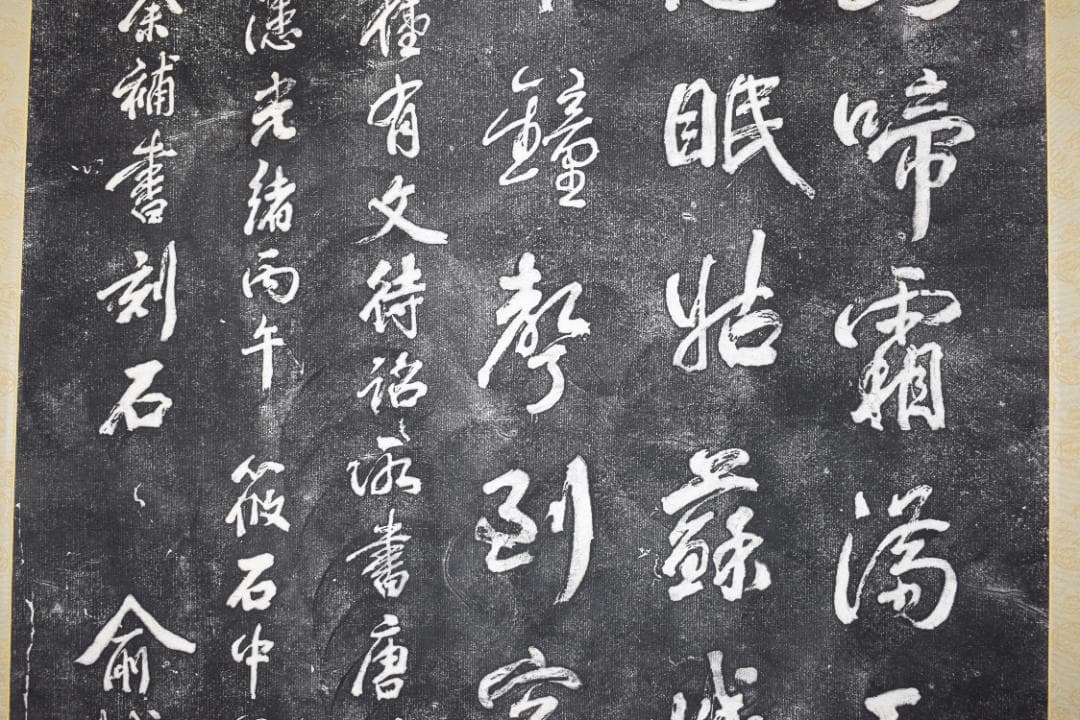 啼霜滿
眠姑蘇城
鐘聲到客
舊有文待詔所書唐
漶光緒丙午 筱石中
余補書刻石 俞